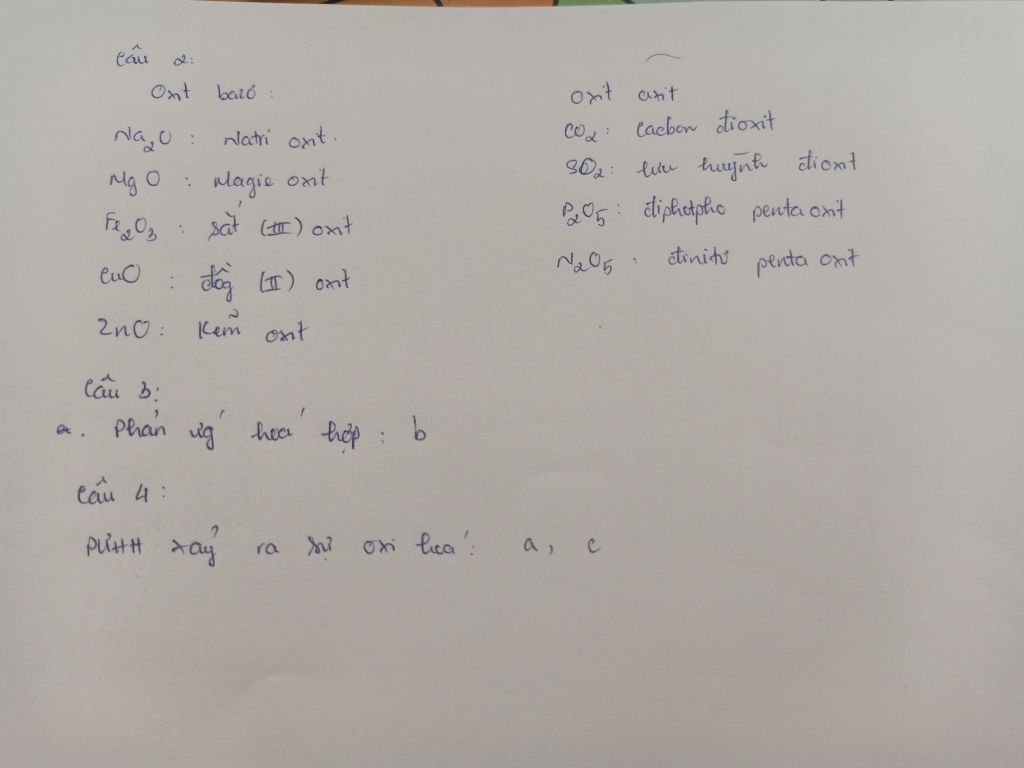 Câu 2:
Oxit bazơ:
Na2O: Natri oxit.
MgO: Magie oxit
Fe2O3: sắt (III) oxit
CuO: đồg (II) oxit
ZnO: Kẽm oxit
oxit axit
CO2: cacbon đioxit
SO2: lưu huỳnh đioxit
P2O5: điphotpho penta oxit
N2O5: đinitơ penta oxit
Câu 3:
a. Phản ứg hoá hợp: b
Câu 4:
PƯHH xảy ra sự oxi hoá: a, c